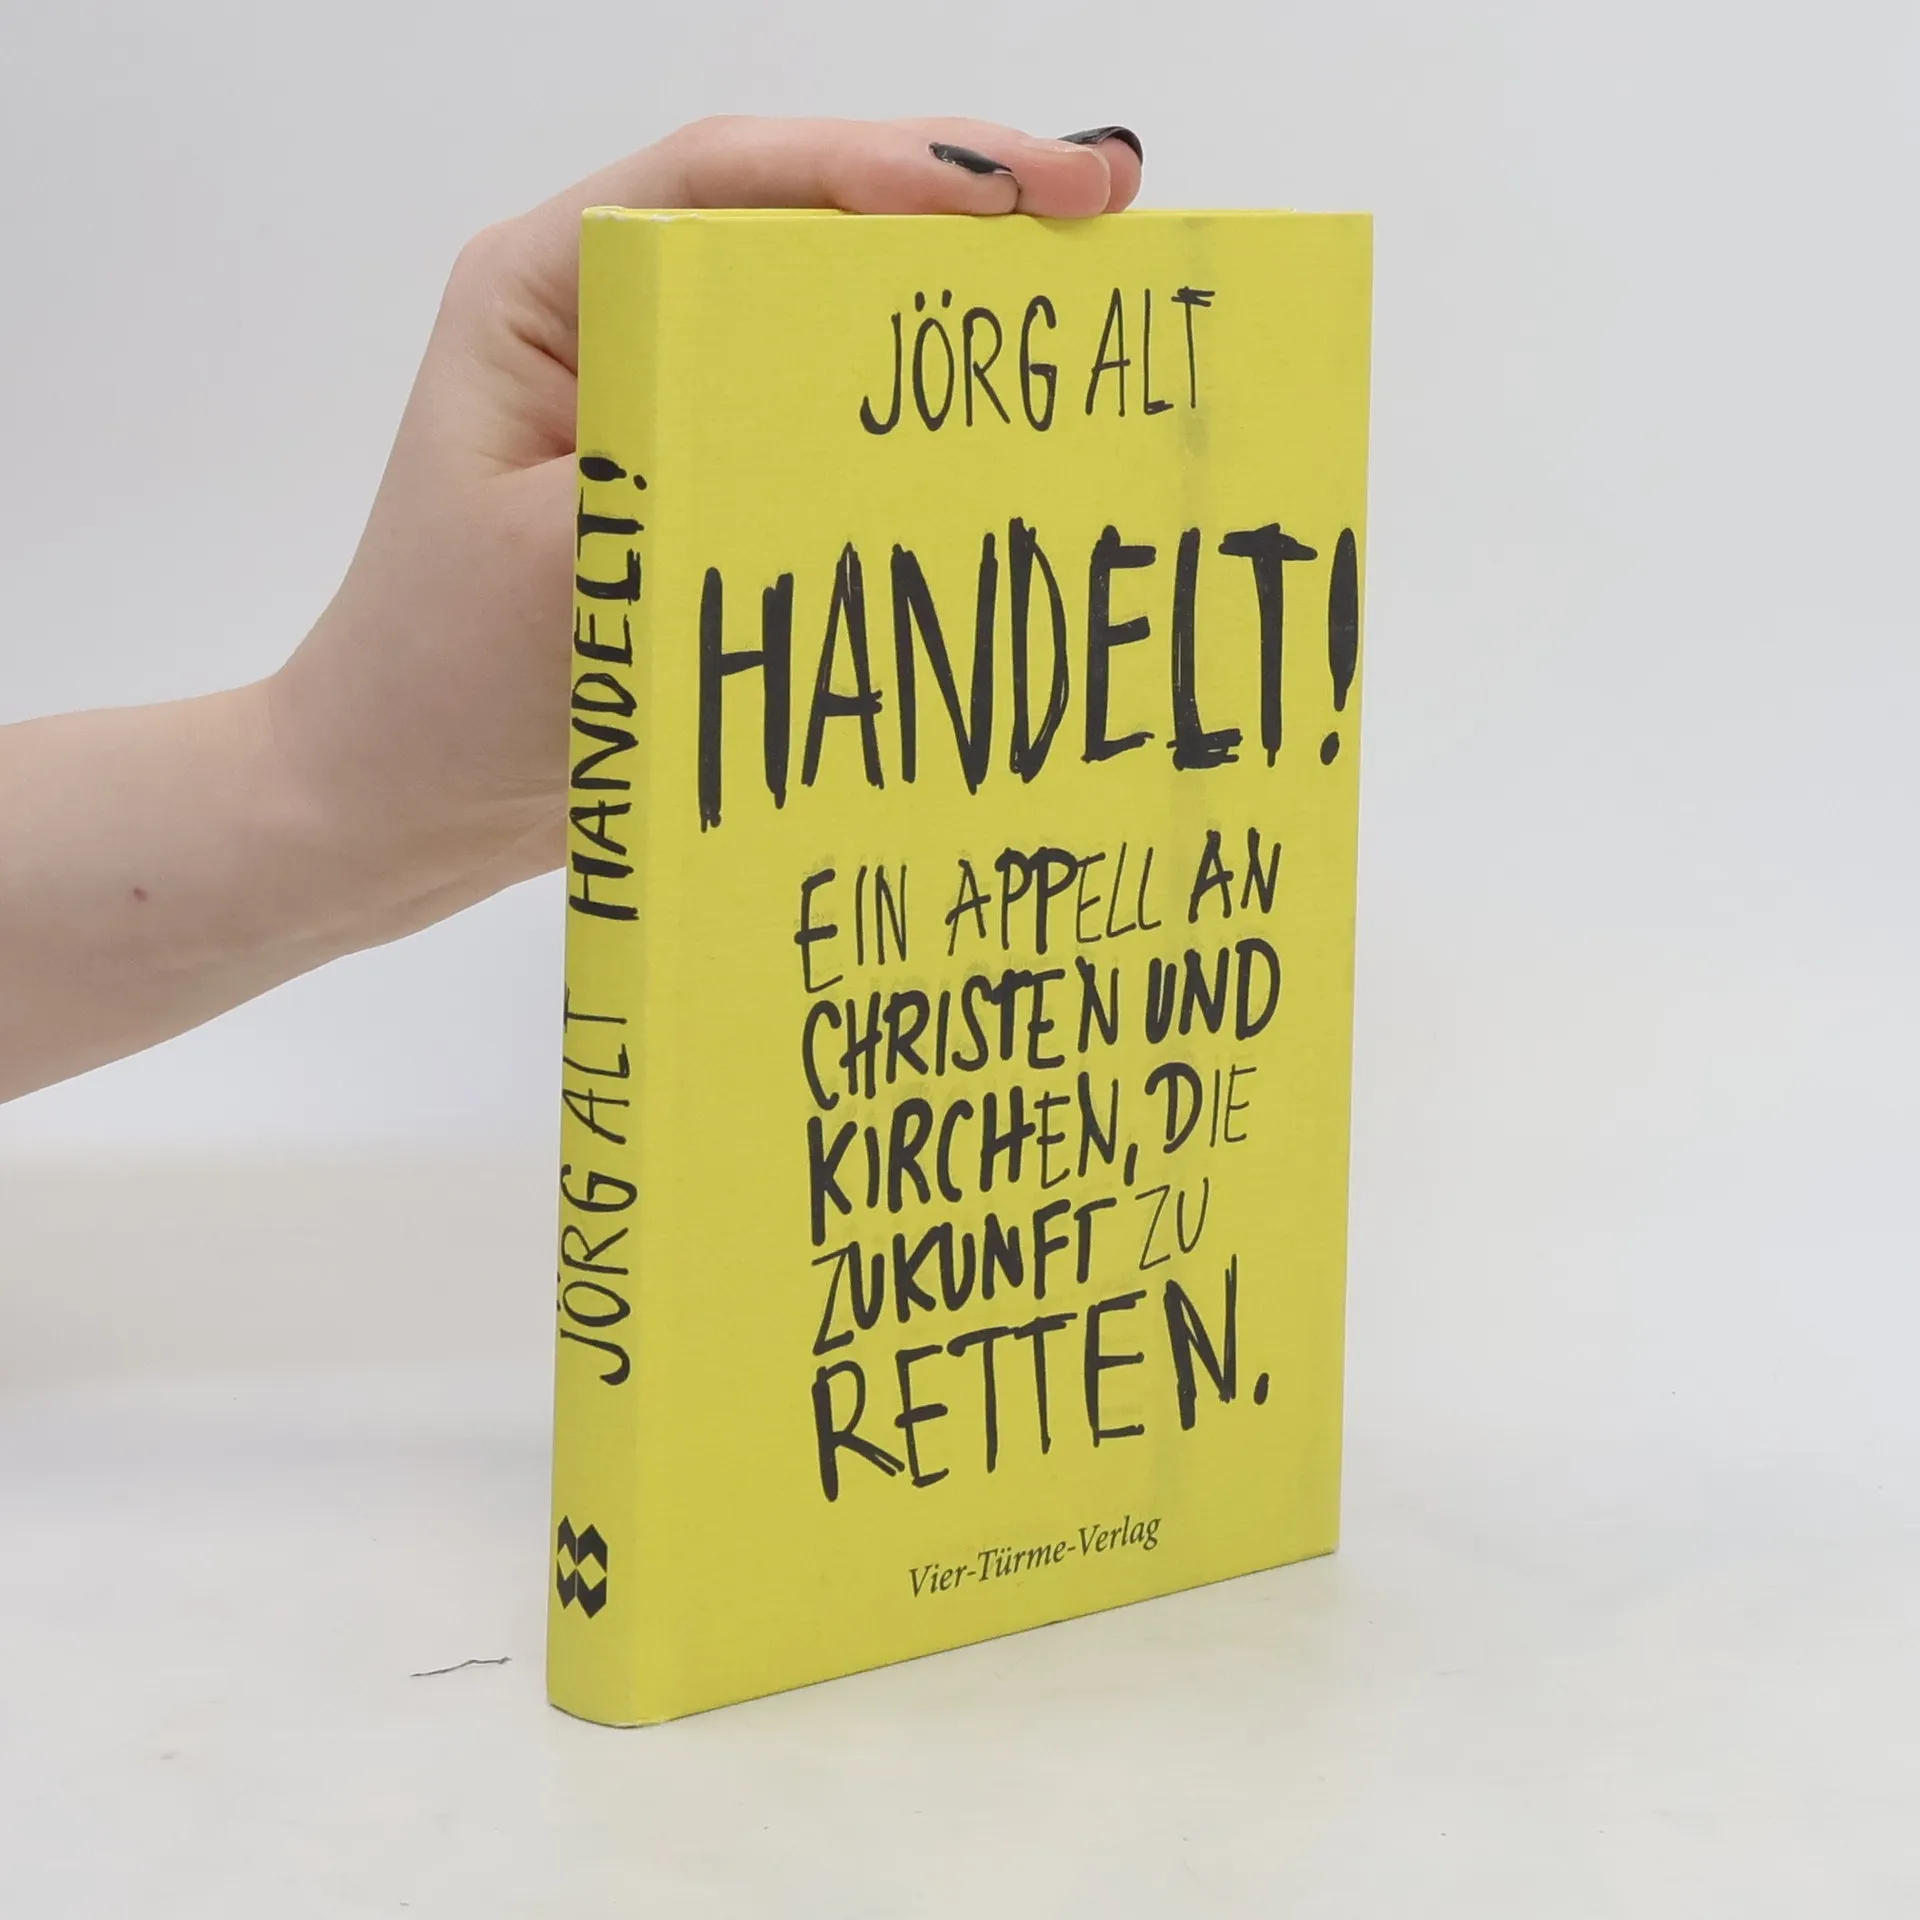 JÖRG ALT
HANDELT!
EIN APPELL AN
CHRISTEN UND
KIRCHEN, DIE
ZUKUNFT ZU
RETTEN.
Vier-Türme-Verlag
JÖRG ALT HANDELT!